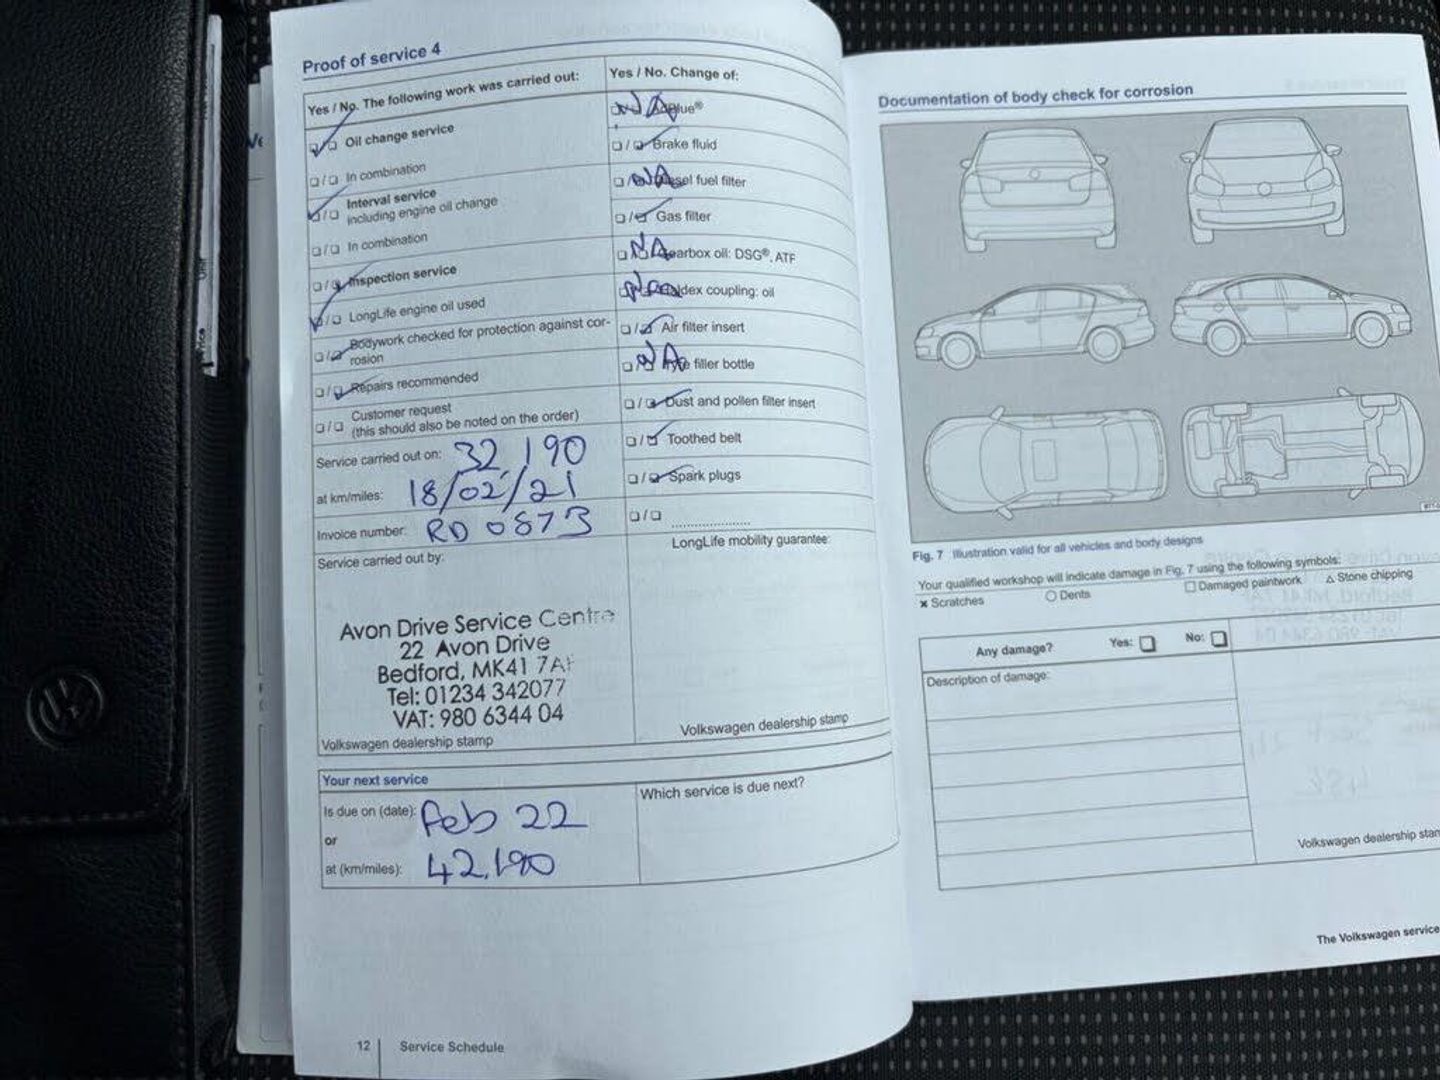 Proof of service 4
Yes / No. The following work was carried out:
Yes / No. Change of:
Oil change service
In combination
Interval service
including engine oil change
In combination
Inspection service
LongLife engine oil used
Bodywork checked for protection against cor-
rosion
Repairs recommended
Customer request
(this should also be noted on the order)
NA AdBlue®
Brake fluid
NA Diesel fuel filter
Gas filter
NA Gearbox oil: DSG®, ATF
NA Haldex coupling: oil
Air filter insert
NA Tyre filler bottle
Dust and pollen filter insert
Toothed belt
Spark plugs
Service carried out on: 32,190
at km/miles: 18/02/21
Invoice number: RD 0873
Service carried out by:
LongLife mobility guarantee:
Avon Drive Service Centre
22 Avon Drive
Bedford, MK41 7A
Tel: 01234 342077
VAT: 980 6344 04
Volkswagen dealership stamp
Volkswagen dealership stamp
Your next service
Is due on (date): Feb 22
or
at (km/miles): 42,190
Which service is due next?
12 Service Schedule
Documentation of body check for corrosion
Fig. 7 Illustration valid for all vehicles and body designs
Your qualified workshop will indicate damage in Fig. 7 using the following symbols:
× Scratches
○ Dents
□ Damaged paintwork
△ Stone chipping
Any damage? Yes: No:
Description of damage:
Volkswagen dealership stam
The Volkswagen service